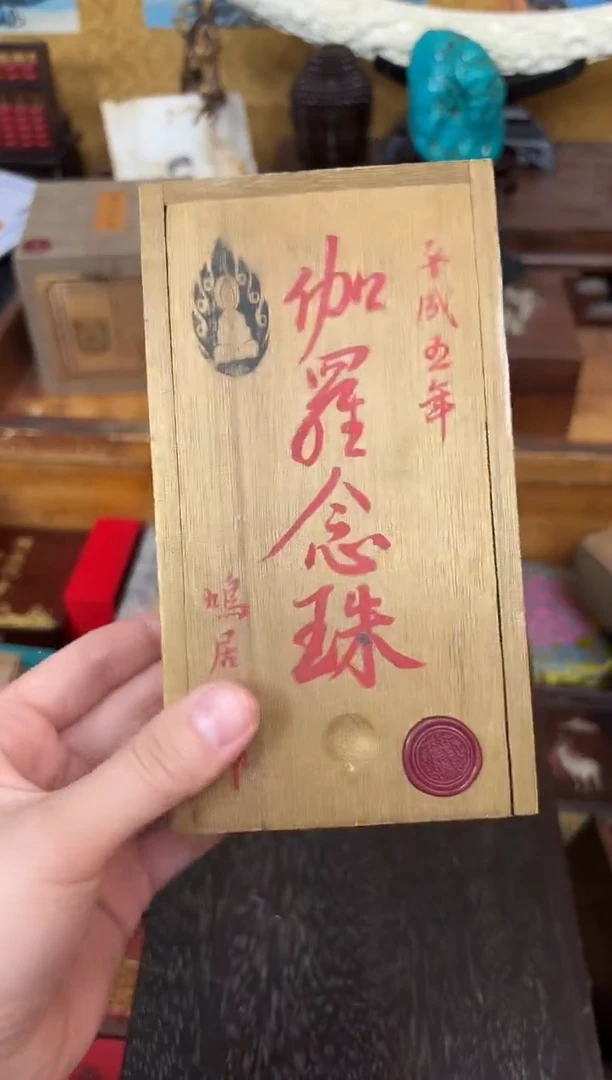 平成五年
伽羅念珠
鳩居